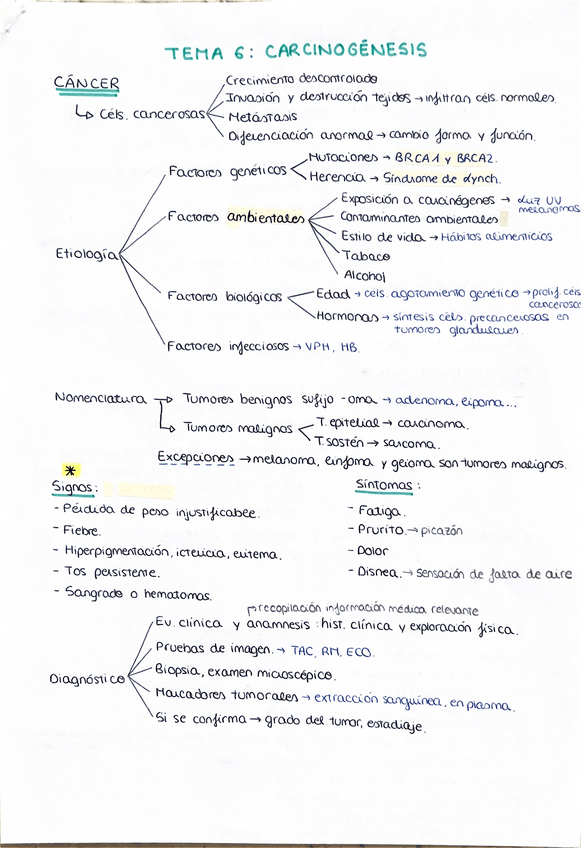 TEMA 6: CARCINOGÉNESIS
CÁNCER
↳ Céls. cancerosas
Crecimiento descontrolado
Invasión y destrucción tejidos → infiltran céls. normales.
Metástasis
Diferenciación anormal → cambio forma y función.
Etiología
Factores genéticos
Mutaciones → BRCA1 y BRCA2.
Herencia → Síndrome de Lynch.
Factores ambientales
Exposición a carcinógenos → Luz UV
melanomas
Contaminantes ambientales
Estilo de vida → Hábitos alimenticios
Tabaco
Alcohol
Factores biológicos
Edad → céls. agotamiento genético → prolif. céls
cancerosas
Hormonas → síntesis céls. precancerosas en
tumores glandulares.
Factores infecciosos → VPH, HB.
Nomenclatura
Tumores benignos sufijo -oma → adenoma, lipoma...
Tumores malignos
T. epitelial → carcinoma.
T. sostén → sarcoma.
Excepciones → melanoma, linfoma y glioma son tumores malignos.
*
Signos:
- Pérdida de peso injustificable.
- Fiebre.
- Hiperpigmentación, ictericia, eritema.
- Tos persistente.
- Sangrado o hematomas.
Síntomas:
- Fatiga.
- Prurito. → picazón
- Dolor
- Disnea. → sensación de falta de aire
Diagnóstico
recopilación información médica relevante
Ev. clínica y anamnesis: hist. clínica y exploración física.
Pruebas de imagen. → TAC, RM, ECO.
Biopsia, examen microscópico.
Marcadores tumorales → extracción sanguínea, en plasma.
Si se confirma → grado del tumor, estadiaje.